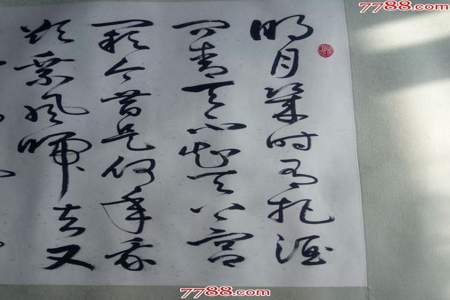 7788.com
明月幾时有把酒
问青天不知天上宫
阙今昔是何年我
欲乘风歸去又
7788.com